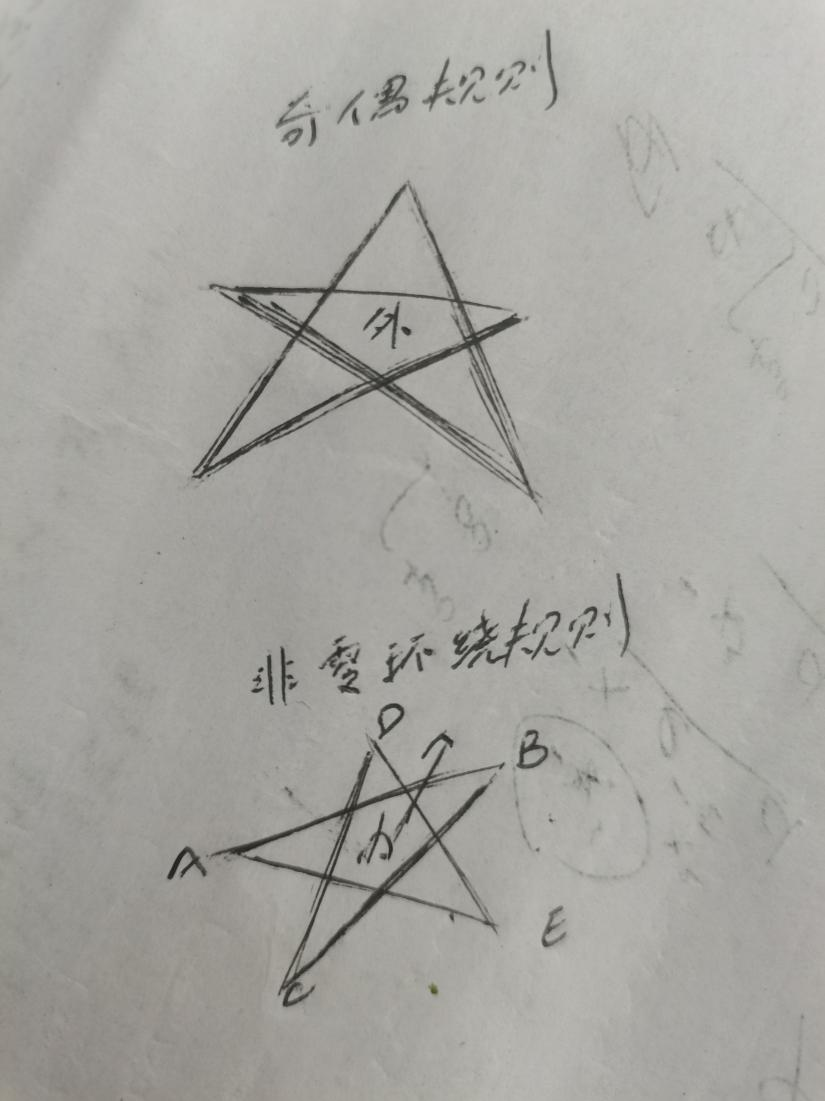 奇偶规则
外
非零环绕规则
D
B
A
内
E
C